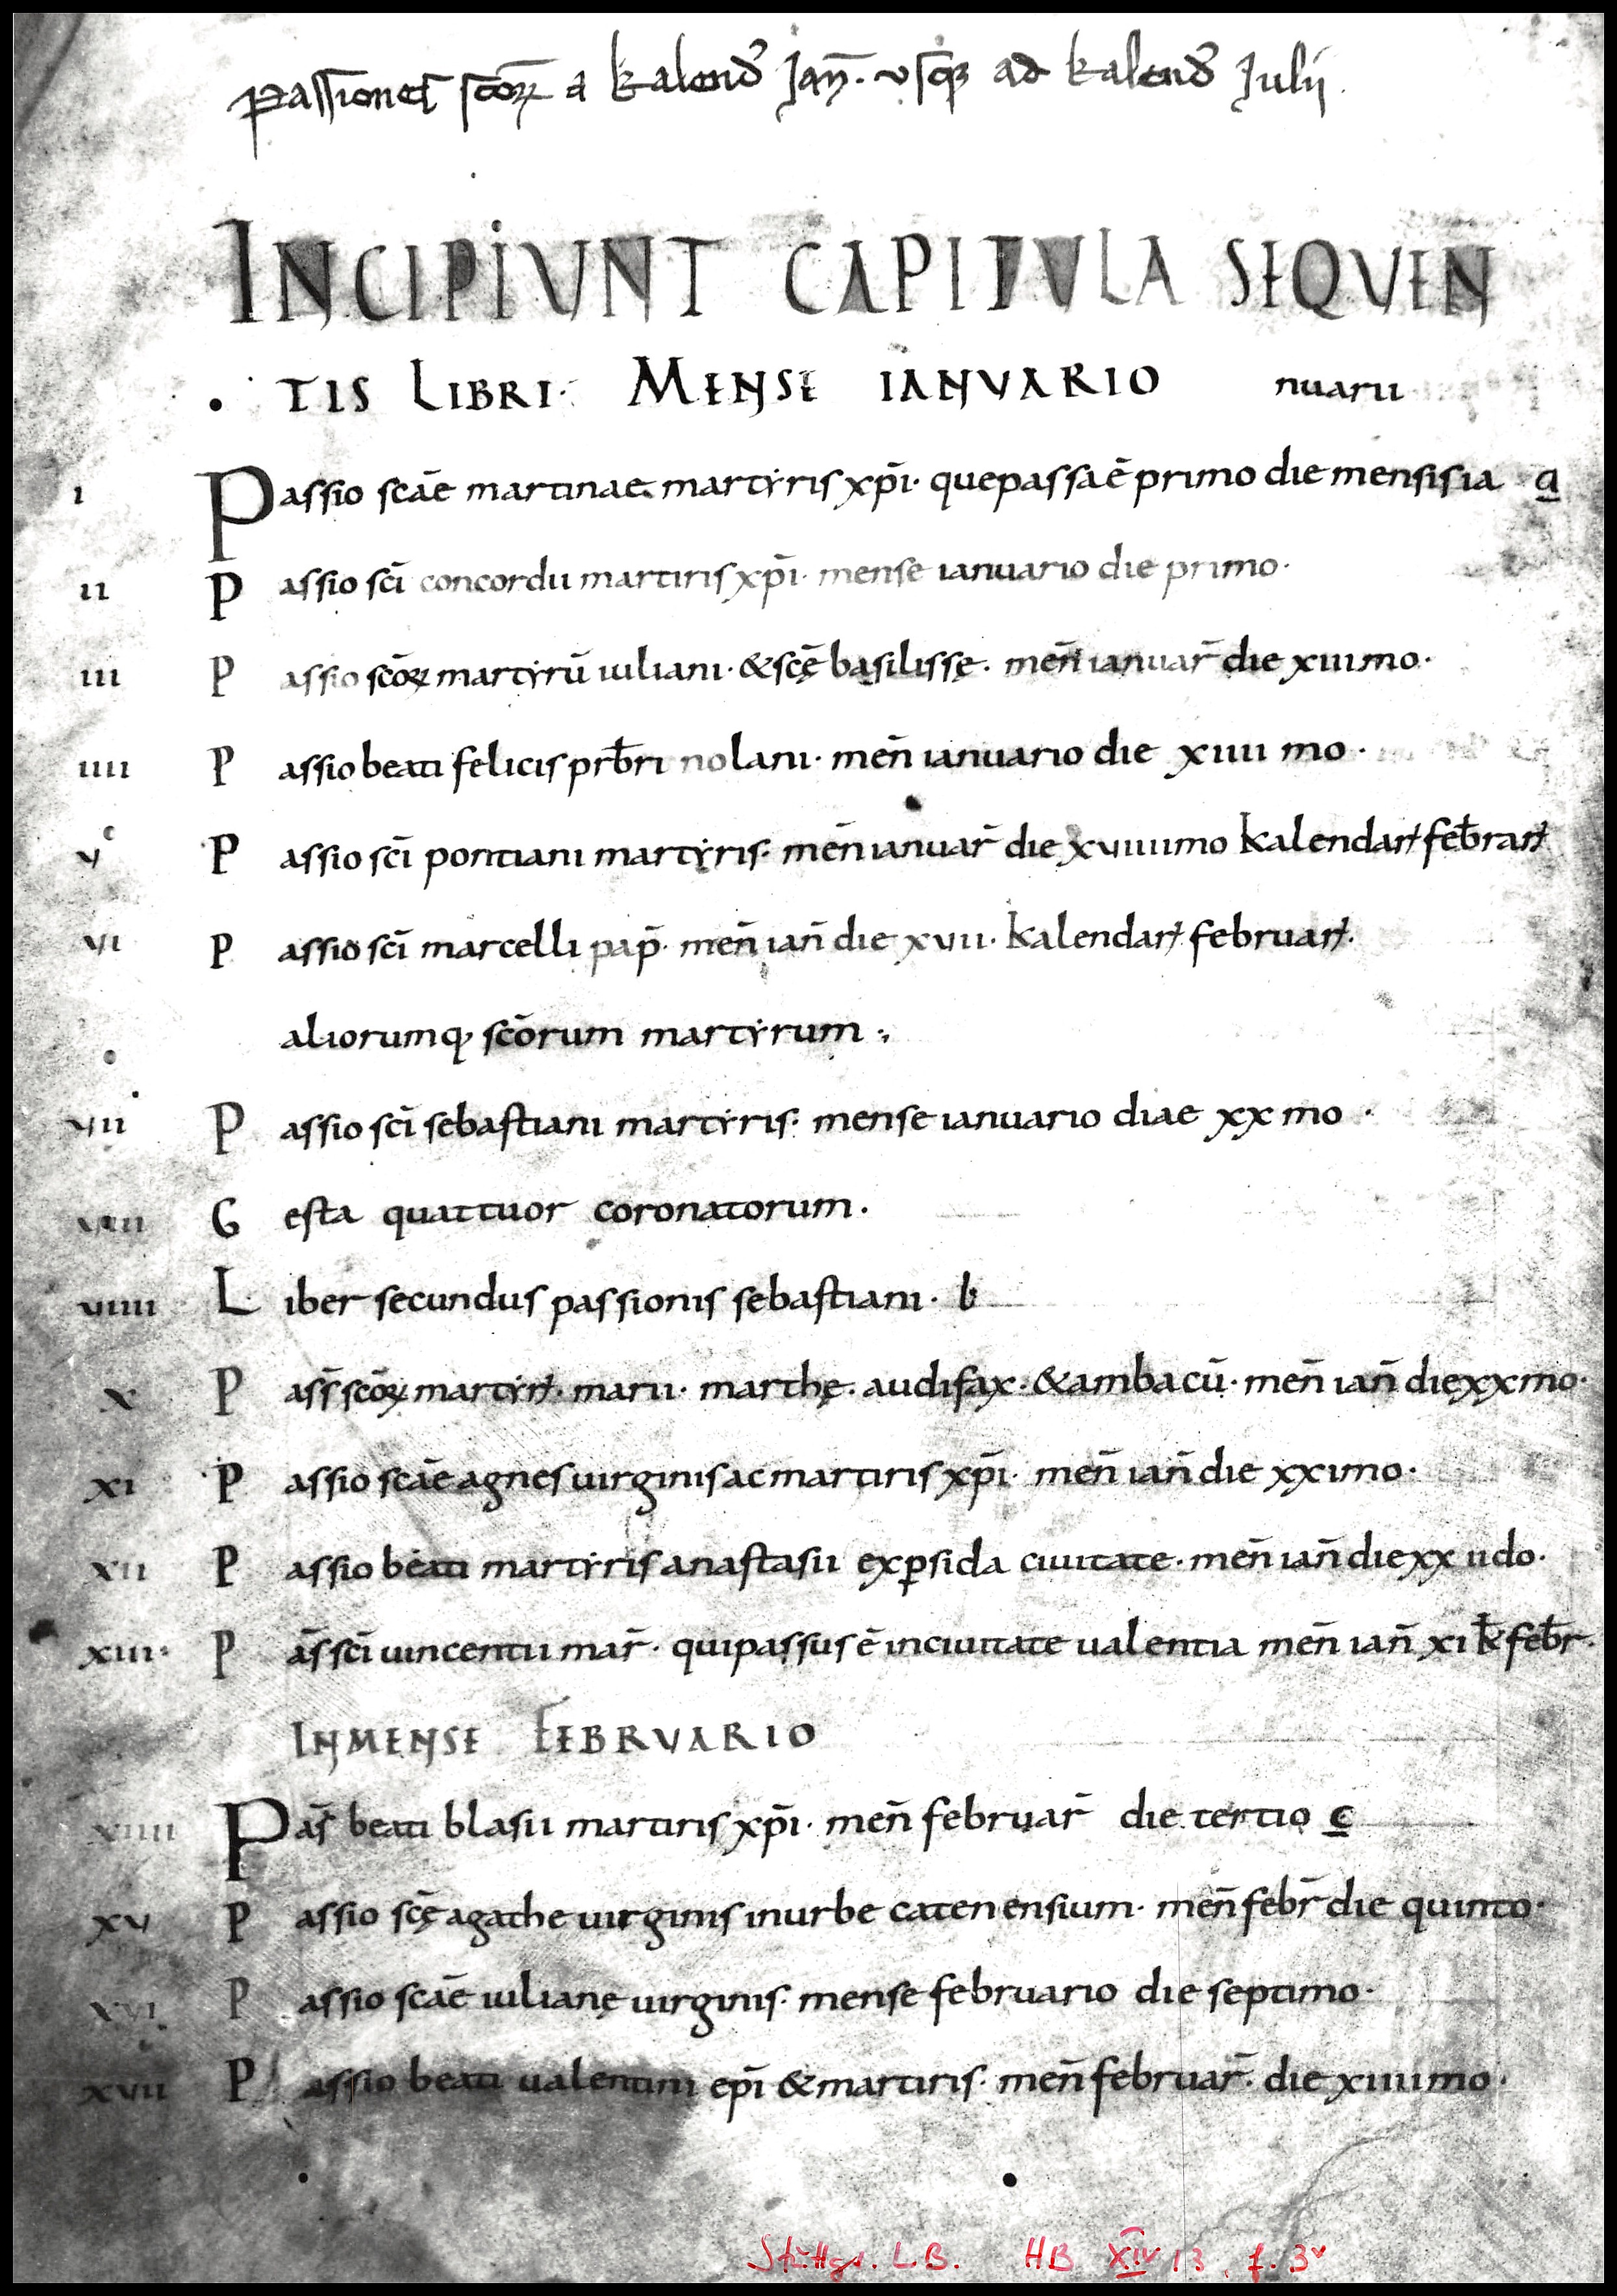 Passiones scōꝝ a kalend̄ Jan̄. vsqꝫ ad kalend̄ Julij.
INCIPIUNT CAPITULA SEQUEN
TIS LIBRI· MENSE IANVARIO nuarii
I Passio scāe martinae martyris xp̄i· que passa ē primo die mensis ia a
II Passio sc̄i concordii martiris xp̄i· mense ianuario die primo·
III Passio scōꝝ martyrū iuliani· & scę̄ basilissę· men̄ ianuar̄ die xiiimo·
IIII Passio beati felicis prb̄ri nolani· men̄ ianuario die xiiii mo·
V Passio sc̄i pontiani martyris· men̄ ianuar̄ die xviiiimo kalendaꝝ feb̄raꝝ
VI Passio sc̄i marcelli pap̄· men̄ ian̄ die xvii· kalendaꝝ februaꝝ·
aliorumq· scōrum martyrum ·,
VII Passio sc̄i sebastiani martyris· mense ianuario diae xx mo ·
VIII Gesta quattuor coronatorum·
VIIII Liber secundus passionis sebastiani· b
X Pass̄ scōꝝ martyꝝ· marii· marthę· audifax· & ambacū· men̄ ian̄ die xxmo·
XI Passio scāe agnes uirginis ac martiris xp̄i· men̄ ian̄ die xximo·
XII Passio beati martyris anastasii exꝑsida ciuitate· men̄ ian̄ die xx iido·
XIII· Pās sc̄i uincentii mar̄· qui passus ē in ciuitate ualentia men̄ ian̄ xi k̄ feb̄r·
IN MENSE FEBRVARIO
XIIII Pas̄ beati blasii martiris xp̄i· men̄ februar̄ die tertio c
XV Passio scę̄ agathe uirginis in urbe catenensium· men̄ febr̄ die quinto·
XVI Passio scāe iulianę uirginis· mense februario die septimo·
XVII Passio beati ualentini ep̄i & martiris· men̄ februar̄· die xiiiimo·
Stuttgt. L.B. HB XIV 13, f. 3v